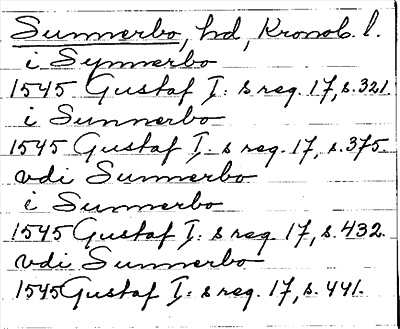 Sunnerbo, hd, Kronob. l.
i Synnerbo
1545 Gustaf I: s reg. 17, s. 321.
i Sunnerbo
1545 Gustaf I: s reg. 17, s. 375.
vdi Sunnerbo
i Sunnerbo
1545 Gustaf I: s reg. 17, s. 432.
vdi Sunnerbo
1545 Gustaf I: s reg. 17, s. 441.